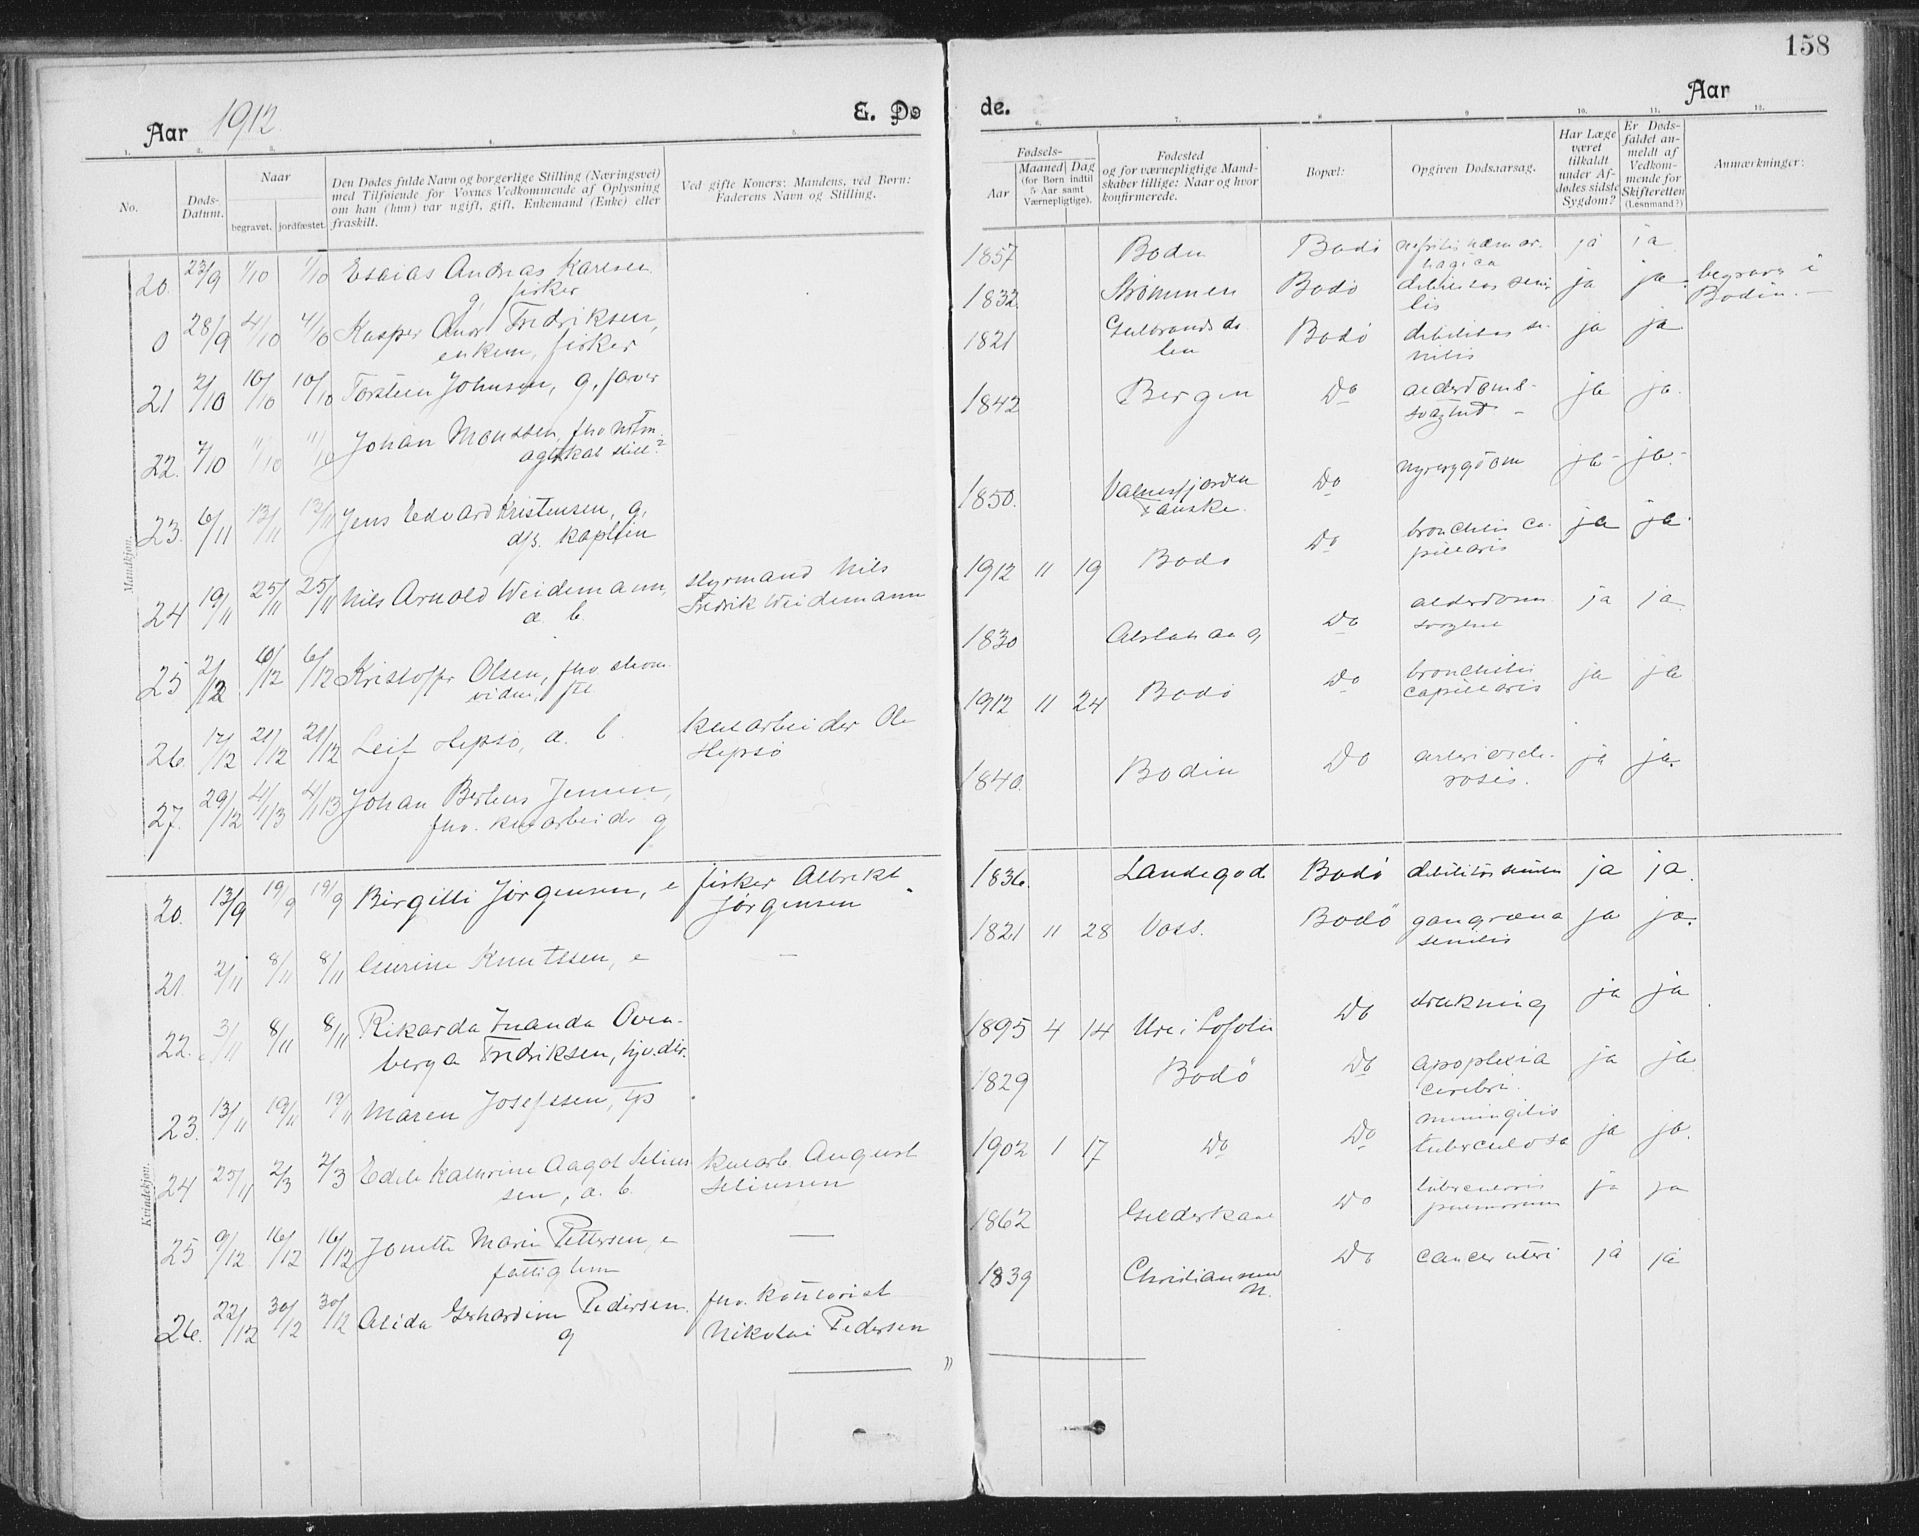 158
Aar 1912.
E. Dø
de.
Aar
1. 2. 3. 4. 5.
6. 7. 8. 9. 10. 11. 12.
No.
Døds-
Datum.
Naar
begravet. jordfæstet.
Den Dødes fulde Navn og borgerlige Stilling (Næringsvei)
med Tilføiende for Voxnes Vedkommende af Oplysning
om han (hun) var ugift, gift, Enkemand (Enke) eller
fraskilt.
Ved gifte Koners: Mandens, ved Børn:
Faderens Navn og Stilling.
Fødsels-
Aar
Maaned Dag
(for Børn indtil
5 Aar samt
Værnepligtige).
Fødested
og for værnepligtige Mand-
skaber tillige: Naar og hvor
konfirmerede.
Bopæl:
Opgiven Dødsaarsag.
Har Læge
været
tilkaldt
under Af-
dødes sidste
Sygdom?
Er Døds-
faldet an-
meldt af
Vedkom-
mende for
Skifteretten
(Lensmand?)
Anmærkninger:
Mandkjøn.
20. 23/9 1/10 1/10 Esaias Andreas Karlsen
g, fisker
0 28/9 4/10 4/10 Kasper Andr Fredriksen,
enkem, fisker
21 2/10 10/10 10/10 Torstein Johnsen, g, farver
22. 7/10 11/10 11/10 Johan Monssen, fhv
23. 6/11 13/11 13/11 Jens Edvard Kristensen, g,
d/s. kaptein
24 19/11 25/11 25/11 Nils Arnold Weidemann, styrmand Nils
a. b Fredrik Weidemann
25 2/12 6/12 6/12 Kristoffer Olsen, fhv
26 17/12 21/12 21/12 Leif Hepsø, a. b. kularbeider Ole
Hepsø
27. 29/12 4/1 13 4/1 13 Johan Berteus Jensen,
fhv. kularbeider g
Kvindekjøn.
20. 13/9 19/9 19/9 Birgitte Jørgensen, e fisker Albrekt
Jørgensen
21. 2/11 8/11 8/11 Knutssen, e —
22. 3/11 8/11 8/11 Rikarda Inanda Oven-
berga Fredriksen, tjv.dtr.
23. 13/11 19/11 19/11 Maren Josefesen,
24 25/11 2/3 2/3 Edele Kathrine Aagot Selius kularb August
sen, a. b. Seliussen
25 9/12 16/12 16/12 Jonette Marie Pettersen, e —
fattiglem
26. 22/12 30/12 30/12 Alida Gerhardine Pedersen. fhv. kontorist
g Nikolai Pedersen
1857 Bodin Bodø nefritis hæmor-
hagica ja ja
1832 Strømmen Bodø debilitas seni-
lis ja ja. begravet i
Bodin. —
1821 Gulbrandsda
len Bodø debilitas se-
nilis ja ja
1842 Bergen Do alderdoms-
svaghed – ja ja.
1850. Valnesfjorden
Fauske. Do nyresygdom ja ja.
1912 11 19 Bodø Do bronchitis ca-
pillaris ja ja.
1830 Alstahaug Do alderdoms
svaghed ja ja.
1912 11 24 Bodø Do bronchitis
capillaris ja ja
1840. Bodin Do arterioscle-
rosis. ja ja.
1836. Landegode Bodø debilitas senilis ja ja.
1821 11 28 Voss. Bodø gangræna
senilis ja ja.
1895 4 14 Ure i Lofoten Do drukning ja ja
1829 Bodø Do apoplexia
cerebri. ja ja
1902 1 17 Do Do meningitis
tuberculosa ja ja.
1862 Gilderkaal Do tuberculosis
pulmonum ja ja
1839 Christianssund
N. Do cancer uteri ja ja